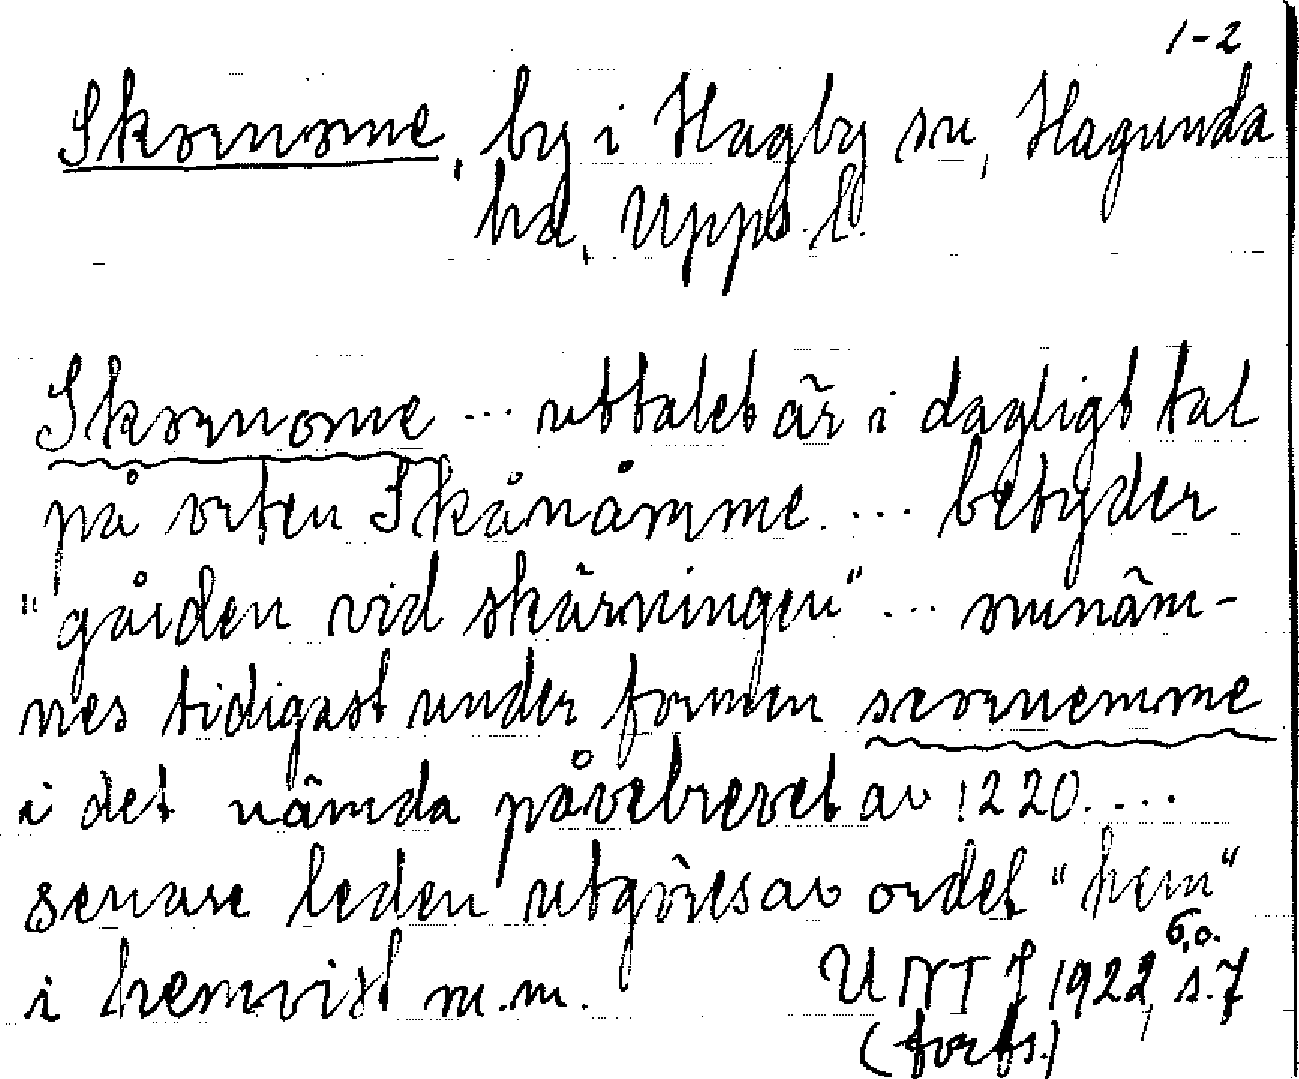 1-2
Skornome, by i Hagby sn, Hagunda
hd, Upps. l.
Skornome ... uttalet är i dagligt tal
på orten Skånåmme. ... betyder
"gården vid skärningen" ... omnäm-
nes tidigast under formen scornemme
i det nämda påvebrevet av 1220. ...
senare leden utgöres av ordet "hem"
i hemvist m.m. UNT J 1922, s. 7
6,o.
(forts.)